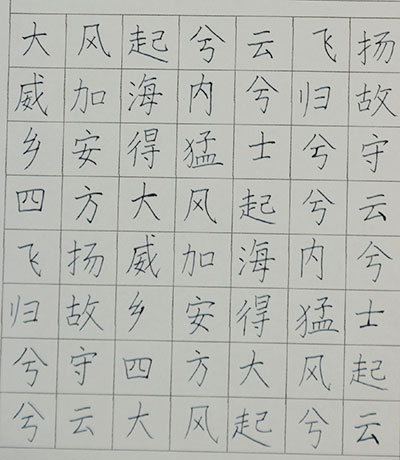 大风起兮云飞扬
威加海内兮归故
乡安得猛士兮守
四方大风起兮云
飞扬威加海内兮
归故乡安得猛士
兮守四方大风起
兮云大风起兮云